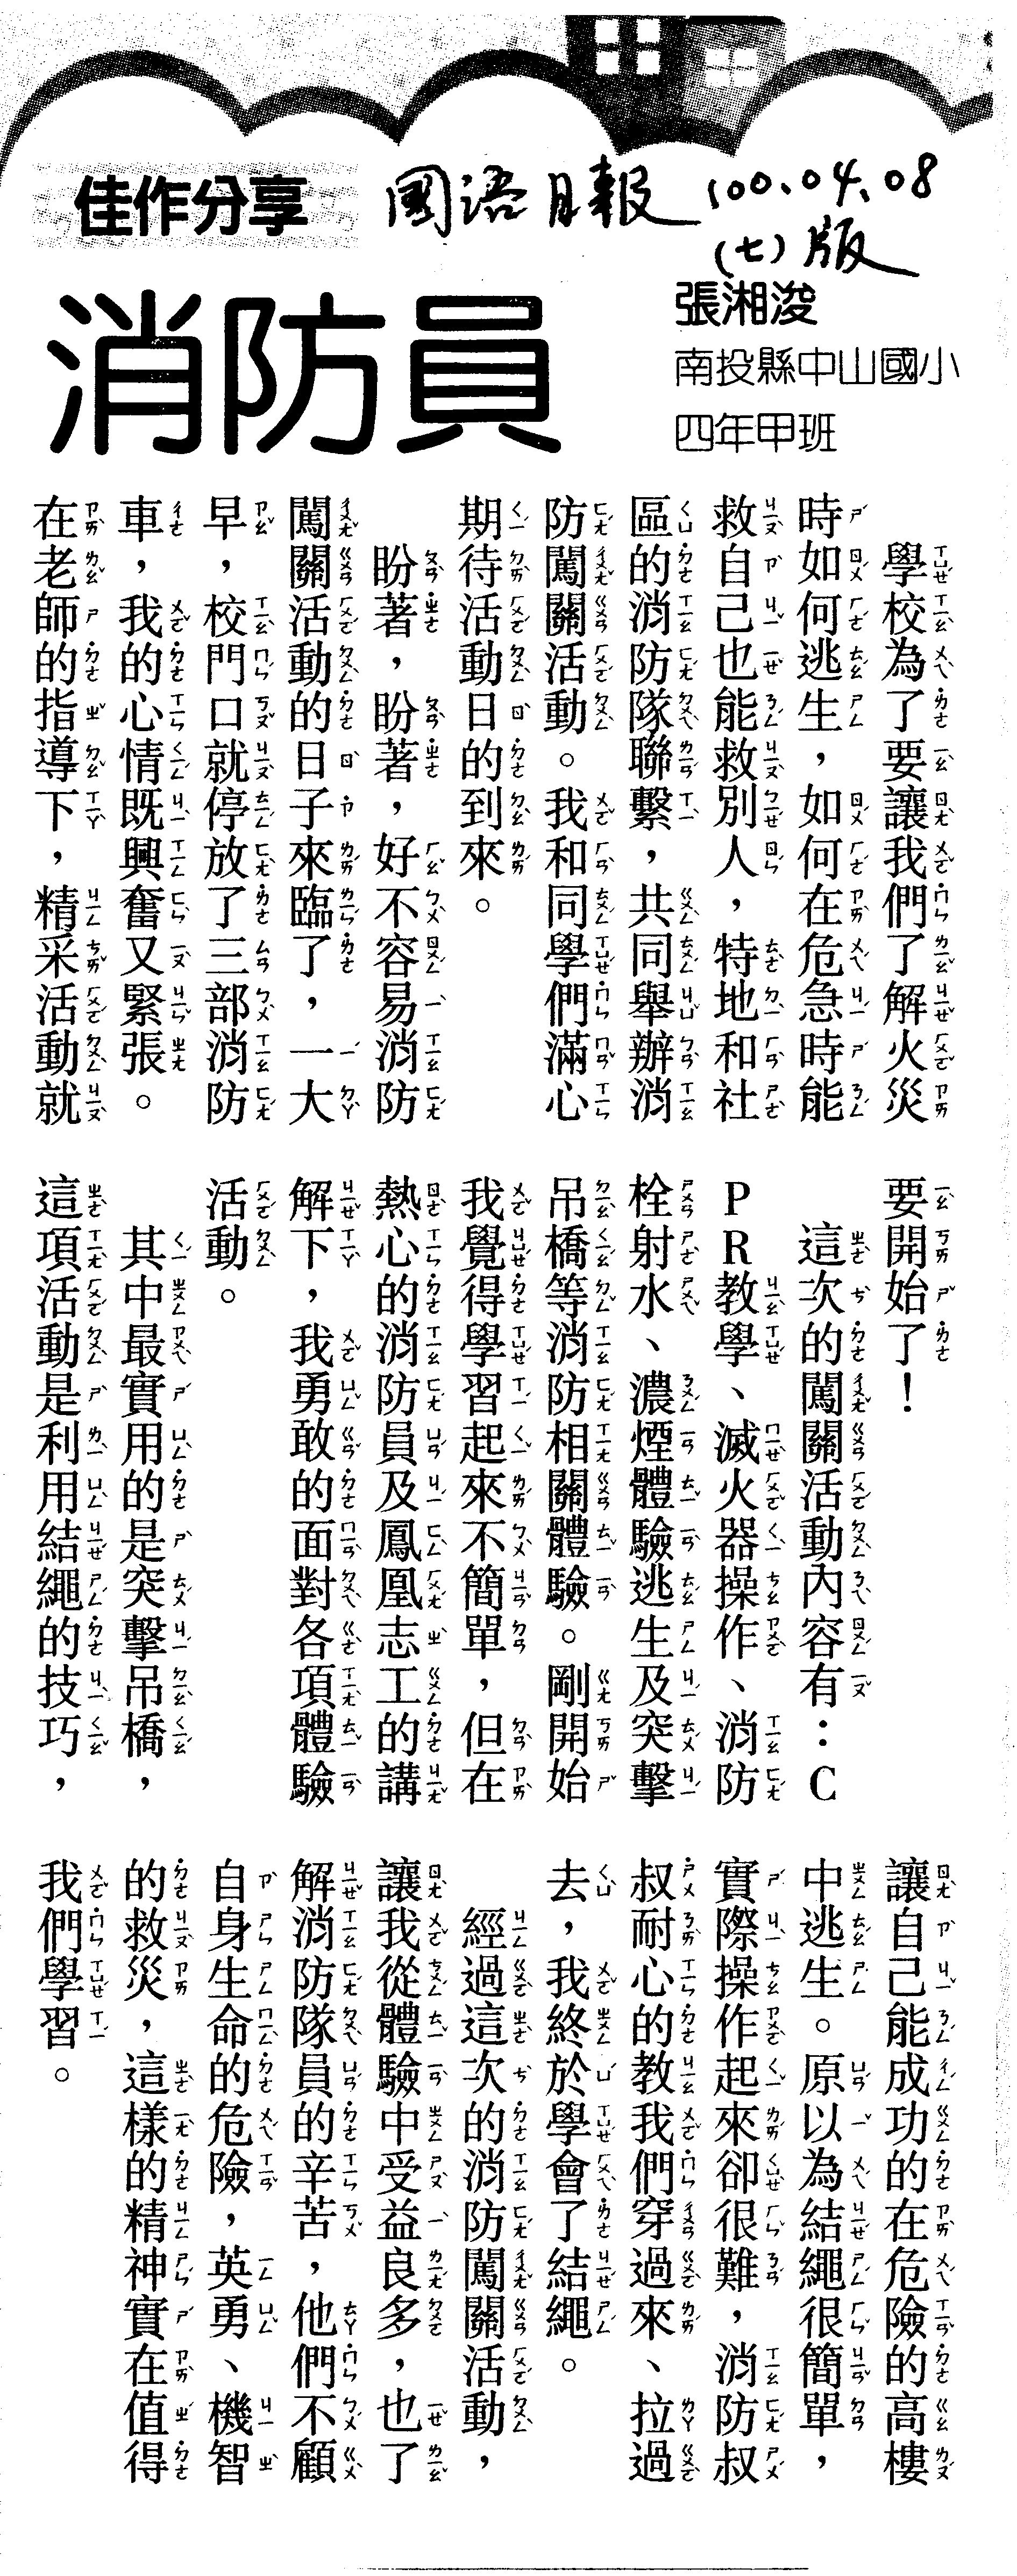 佳作分享
國語日報 100、04、08
(七)版
消防員
張湘浚
南投縣中山國小
四年甲班
學校為了要讓我們了解火災
時如何逃生，如何在危急時能
救自己也能救別人，特地和社
區的消防隊聯繫，共同舉辦消
防闖關活動。我和同學們滿心
期待活動日的到來。
盼著，盼著，好不容易消防
闖關活動的日子來臨了，一大
早，校門口就停放了三部消防
車，我的心情既興奮又緊張。
在老師的指導下，精采活動就
要開始了！
這次的闖關活動內容有：C
PR教學、滅火器操作、消防
栓射水、濃煙體驗逃生及突擊
吊橋等消防相關體驗。剛開始
我覺得學習起來不簡單，但在
熱心的消防員及鳳凰志工的講
解下，我勇敢的面對各項體驗
活動。
其中最實用的是突擊吊橋，
這項活動是利用結繩的技巧，
讓自己能成功的在危險的高樓
中逃生。原以為結繩很簡單，
實際操作起來卻很難，消防叔
叔耐心的教我們穿過來、拉過
去，我終於學會了結繩。
經過這次的消防闖關活動，
讓我從體驗中受益良多，也了
解消防隊員的辛苦，他們不顧
自身生命的危險，英勇、機智
的救災，這樣的精神實在值得
我們學習。